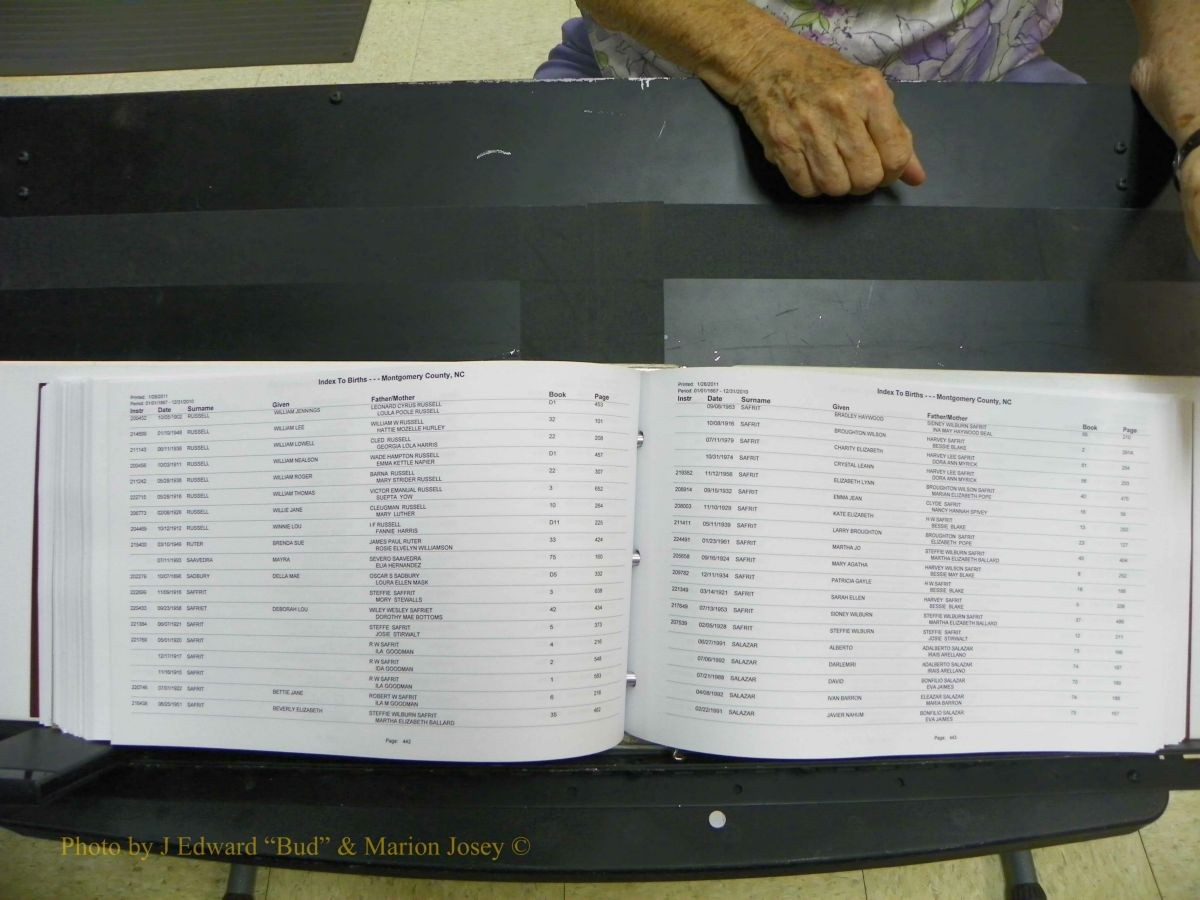 Index To Births - - - Montgomery County, NC
Printed: 1/26/2011
Period: 01/01/1867 - 12/31/2010
Instr Date Surname Given Father/Mother Book Page
200452 10/05/1902 RUSSELL WILLIAM JENNINGS LEONARD CYRUS RUSSELL D1 453
LOULA POOLE RUSSELL
RUSSELL WILLIAM LEE WILLIAM W RUSSELL 32 101
HATTIE MOZELLE HURLEY
211143 RUSSELL WILLIAM LOWELL CLED RUSSELL 22 208
GEORGIA LOLA HARRIS
200456 10/03/1911 RUSSELL WILLIAM NEALSON WADE HAMPTON RUSSELL D1 457
EMMA KETTLE NAPIER
211242 05/28/1938 RUSSELL WILLIAM ROGER BARNA RUSSELL 22 307
MARY STRIDER RUSSELL
222715 05/28/1916 RUSSELL WILLIAM THOMAS VICTOR EMANUAL RUSSELL 3 652
SUEPTA YOW
206773 02/08/1926 RUSSELL WILLIE JANE CLEUGMAN RUSSELL 10 264
MARY LUTHER
204469 10/12/1912 RUSSELL WINNIE LOU I F RUSSELL D11 225
FANNIE HARRIS
215400 03/10/1949 RUTER BRENDA SUE JAMES PAUL RUTER 33 424
ROSIE ELVELYN WILLIAMSON
07/11/1993 SAAVEDRA MAYRA SEVERO SAAVEDRA 75 160
ELIA HERNANDEZ
202276 SADBURY DELLA MAE OSCAR S SADBURY D5 332
LOURA ELLEN MASK
222699 11/09/1916 SAFFRIT STEFFIE SAFFRIT 3 636
MORY STEWALLS
220433 09/23/1958 SAFRIET DEBORAH LOU WILEY WESLEY SAFRIET 42 434
DOROTHY MAE BOTTOMS
221384 06/07/1921 SAFRIT STEFFE SAFRIT 5 373
JOSIE STIRWALT
221769 05/01/1920 SAFRIT R W SAFRIT 4 216
ILA GOODMAN
12/17/1917 SAFRIT R W SAFRIT 2 548
IDA GOODMAN
11/15/1915 SAFRIT R W SAFRIT 1 583
ILA GOODMAN
220746 07/01/1922 SAFRIT BETTIE JANE ROBERT W SAFRIT 6 216
ILA M GOODMAN
216438 06/25/1951 SAFRIT BEVERLY ELIZABETH STEFFIE WILBURN SAFRIT 35 462
MARTHA ELIZABETH BALLARD
Page: 443
Index To Births - - - Montgomery County, NC
Printed: 1/26/2011
Period: 01/01/1867 - 12/31/2010
Instr Date Surname Given Father/Mother Book Page
09/08/1953 SAFRIT BRADLEY HAYWOOD SIDNEY WILBURN SAFRIT 210
INA MAY HAYWOOD BEAL
10/08/1916 SAFRIT BROUGHTON WILSON HARVEY SAFRIT 2
BESSIE BLAKE
07/11/1979 SAFRIT CHARITY ELIZABETH HARVEY LEE SAFRIT 61 254
DORA ANN MYRICK
10/31/1974 SAFRIT CRYSTAL LEANN HARVEY LEE SAFRIT 56 253
DORA ANN MYRICK
219352 11/12/1956 SAFRIT ELIZABETH LYNN BROUGHTON WILSON SAFRIT 40 470
MARIAN ELIZABETH POPE
208914 09/15/1932 SAFRIT EMMA JEAN CLYDE SAFRIT 16
NANCY HANNAH SPIVEY
208003 11/10/1929 SAFRIT KATE ELIZABETH H W SAFRIT 13
BESSIE BLAKE
211411 05/11/1939 SAFRIT LARRY BROUGHTON BROUGHTON SAFRIT 23 127
ELIZABETH POPE
224491 01/23/1961 SAFRIT MARTHA JO STEFFIE WILBURN SAFRIT 404
MARTHA ELIZABETH BALLARD
205658 09/16/1924 SAFRIT MARY AGATHA HARVEY WILSON SAFRIT 8 202
BESSIE MAY BLAKE
209782 12/11/1934 SAFRIT PATRICIA GAYLE H W SAFRIT
BESSIE BLAKE
221349 03/14/1921 SAFRIT SARAH ELLEN HARVEY SAFRIT 5
BESSIE BLAKE
217649 07/13/1953 SAFRIT SIDNEY WILBURN STEFFIE WILBURN SAFRIT 37
MARTHA ELIZABETH BALLARD
207539 02/05/1928 SAFRIT STEFFIE WILBURN STEFFIE SAFRIT 12 211
JOSIE STIRWALT
06/27/1991 SALAZAR ALBERTO ADALBERTO SALAZAR 73
IRAIS ARELLANO
07/06/1992 SALAZAR DARLEMIRI ADALBERTO SALAZAR 74
IRAIS ARELLANO
07/21/1988 SALAZAR DAVID BONFILIO SALAZAR
EVA JAIMES
04/08/1992 SALAZAR IVAN BARRON ELEAZAR SALAZAR 74
MARIA BARRON
02/22/1991 SALAZAR JAVIER NAHUM BONFILIO SALAZAR 73
EVA JAIMES
Page: 443
Photo by J Edward “Bud” & Marion Josey ©